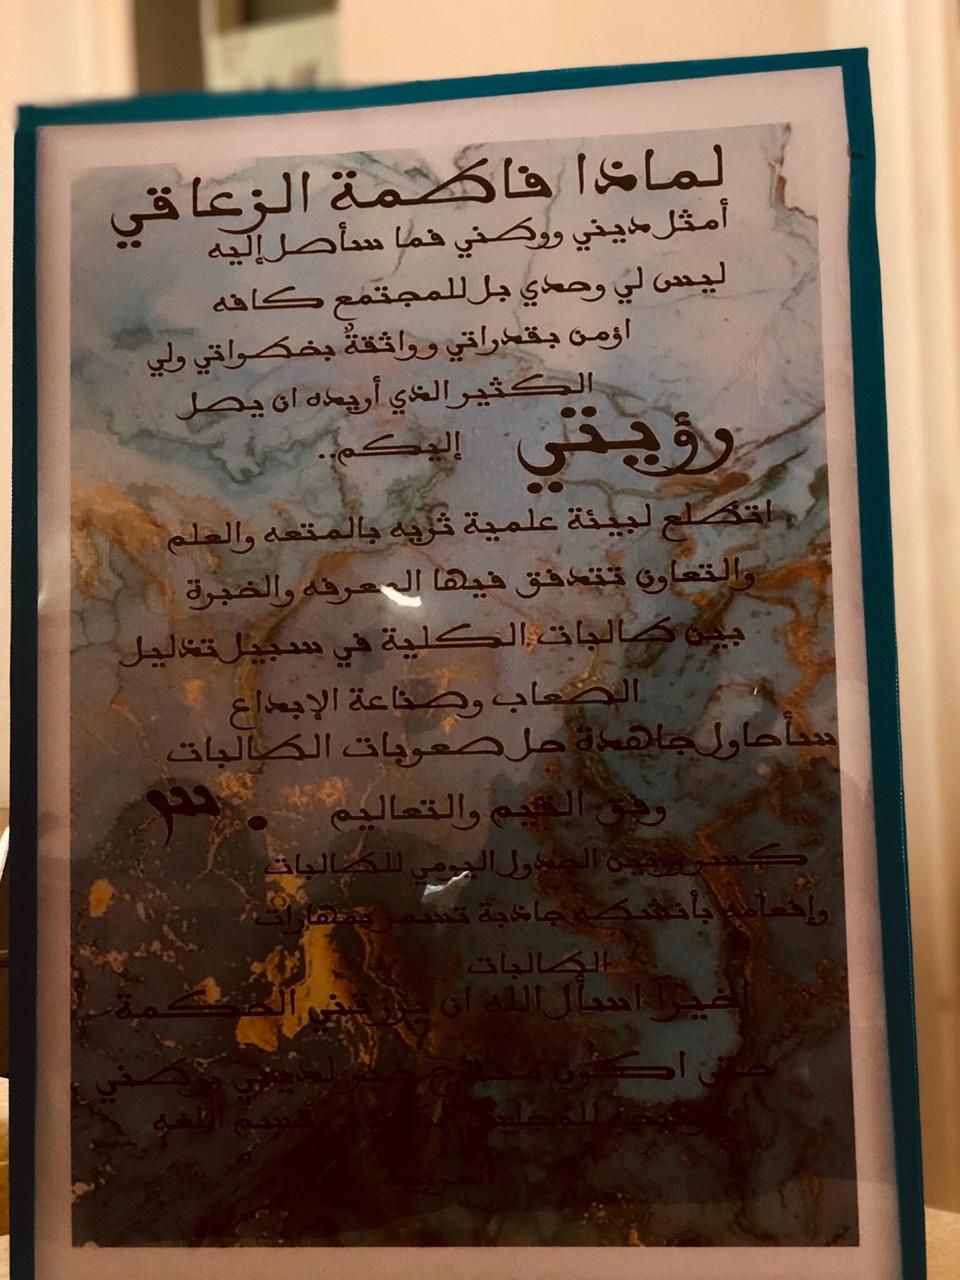 لماذا فاطمة الزعاقي
أمثل ديني ووطني فما سأصل إليه
ليس لي وحدي بل للمجتمع كافه
اؤمن بقدراتي وواثقةٌ بخطواتي ولي
الكثير الذي أريده ان يصل
إليكم..
رؤيتي
اتطلع لبيئة علمية ثريه بالمتعه والعلم
والتعاون تتدفق فيها المعرفه والخبرة
بين طالبات الكلية في سبيل تذليل
الصعاب وصناعة الإبداع
سأحاول جاهدة حل صعوبات الطالبات
وفق القيم والتعاليم .
كسر روتين الجدول اليومي للطالبات
وإفعامه بأنشطه جاذبة تسمر بمهارات
الطالبات
اخيرا اسأل الله ان يرزقني الحكمة
حتى اكون خير لديني ووطني
للمجلس قسم اللغه
العربيه